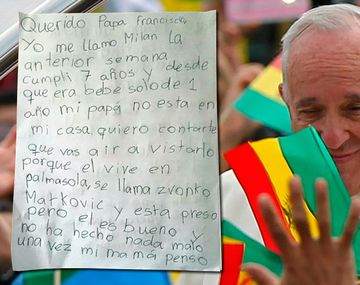 Querido Papa Francisco
Yo me llamo Milan la
anterior semana
cumpli 7 años y desde
que era bebe solo de 1
año mi papá no esta en
mi casa, quiero contarte
que vas a ir a vistarlo
porque el vive en
palmasola, se llama zvonto
Matkovic y esta preso
pero el es bueno y
no ha hecho nada malo
una vez mi mamá penso